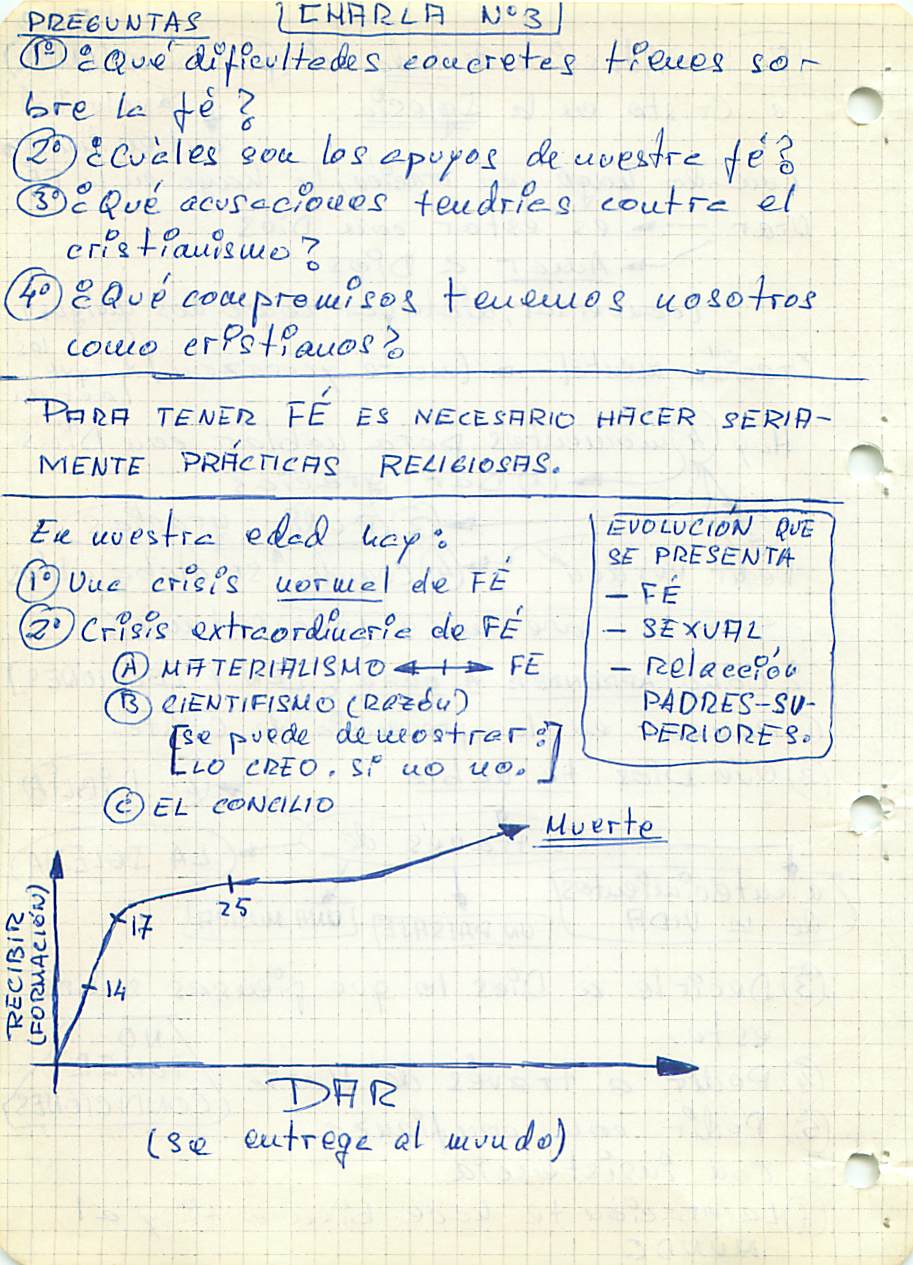 PREGUNTAS
CHARLA Nº 3
1º ¿Qué dificultades concretas tienes so-
bre la fé?
2º ¿Cuáles son los apoyos de nuestra fé?
3º ¿Qué acusaciones tendrías contra el
cristianismo?
4º ¿Qué compromisos tenemos nosotros
como cristianos?
PARA TENER FÉ ES NECESARIO HACER SERIA-
MENTE PRÁCTICAS RELIGIOSAS.
En nuestra edad hay:
1º Una crisis normal de FÉ
2º Crisis extraordinaria de FÉ
A MATERIALISMO ↔ FE
B CIENTIFISMO (Razón)
[se puede demostrar:
LO CREO. Si no no.]
C EL CONCILIO
EVOLUCIÓN QUE
SE PRESENTA
- FÉ
- SEXUAL
- Relacción
PADRES-SU-
PERIORES.
Muerte
25
17
14
RECIBIR
(FORMACIÓN)
DAR
(Se entrega al mundo)